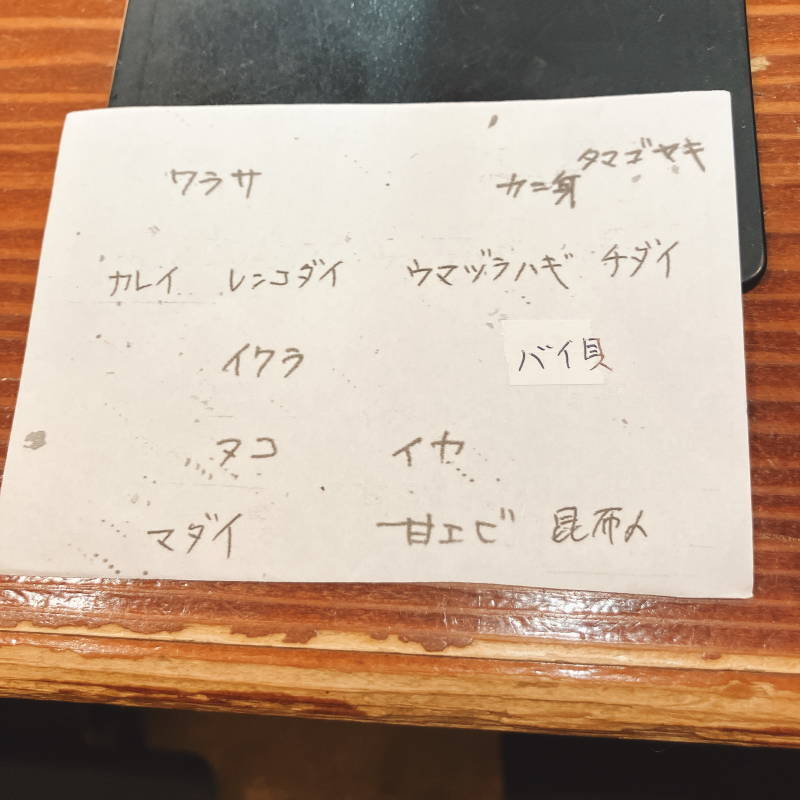 ワラサ カニ身 タマゴヤキ
カレイ レンコダイ ウマヅラハギ チダイ
イクラ バイ貝
タコ イカ
マダイ 甘エビ 昆布〆